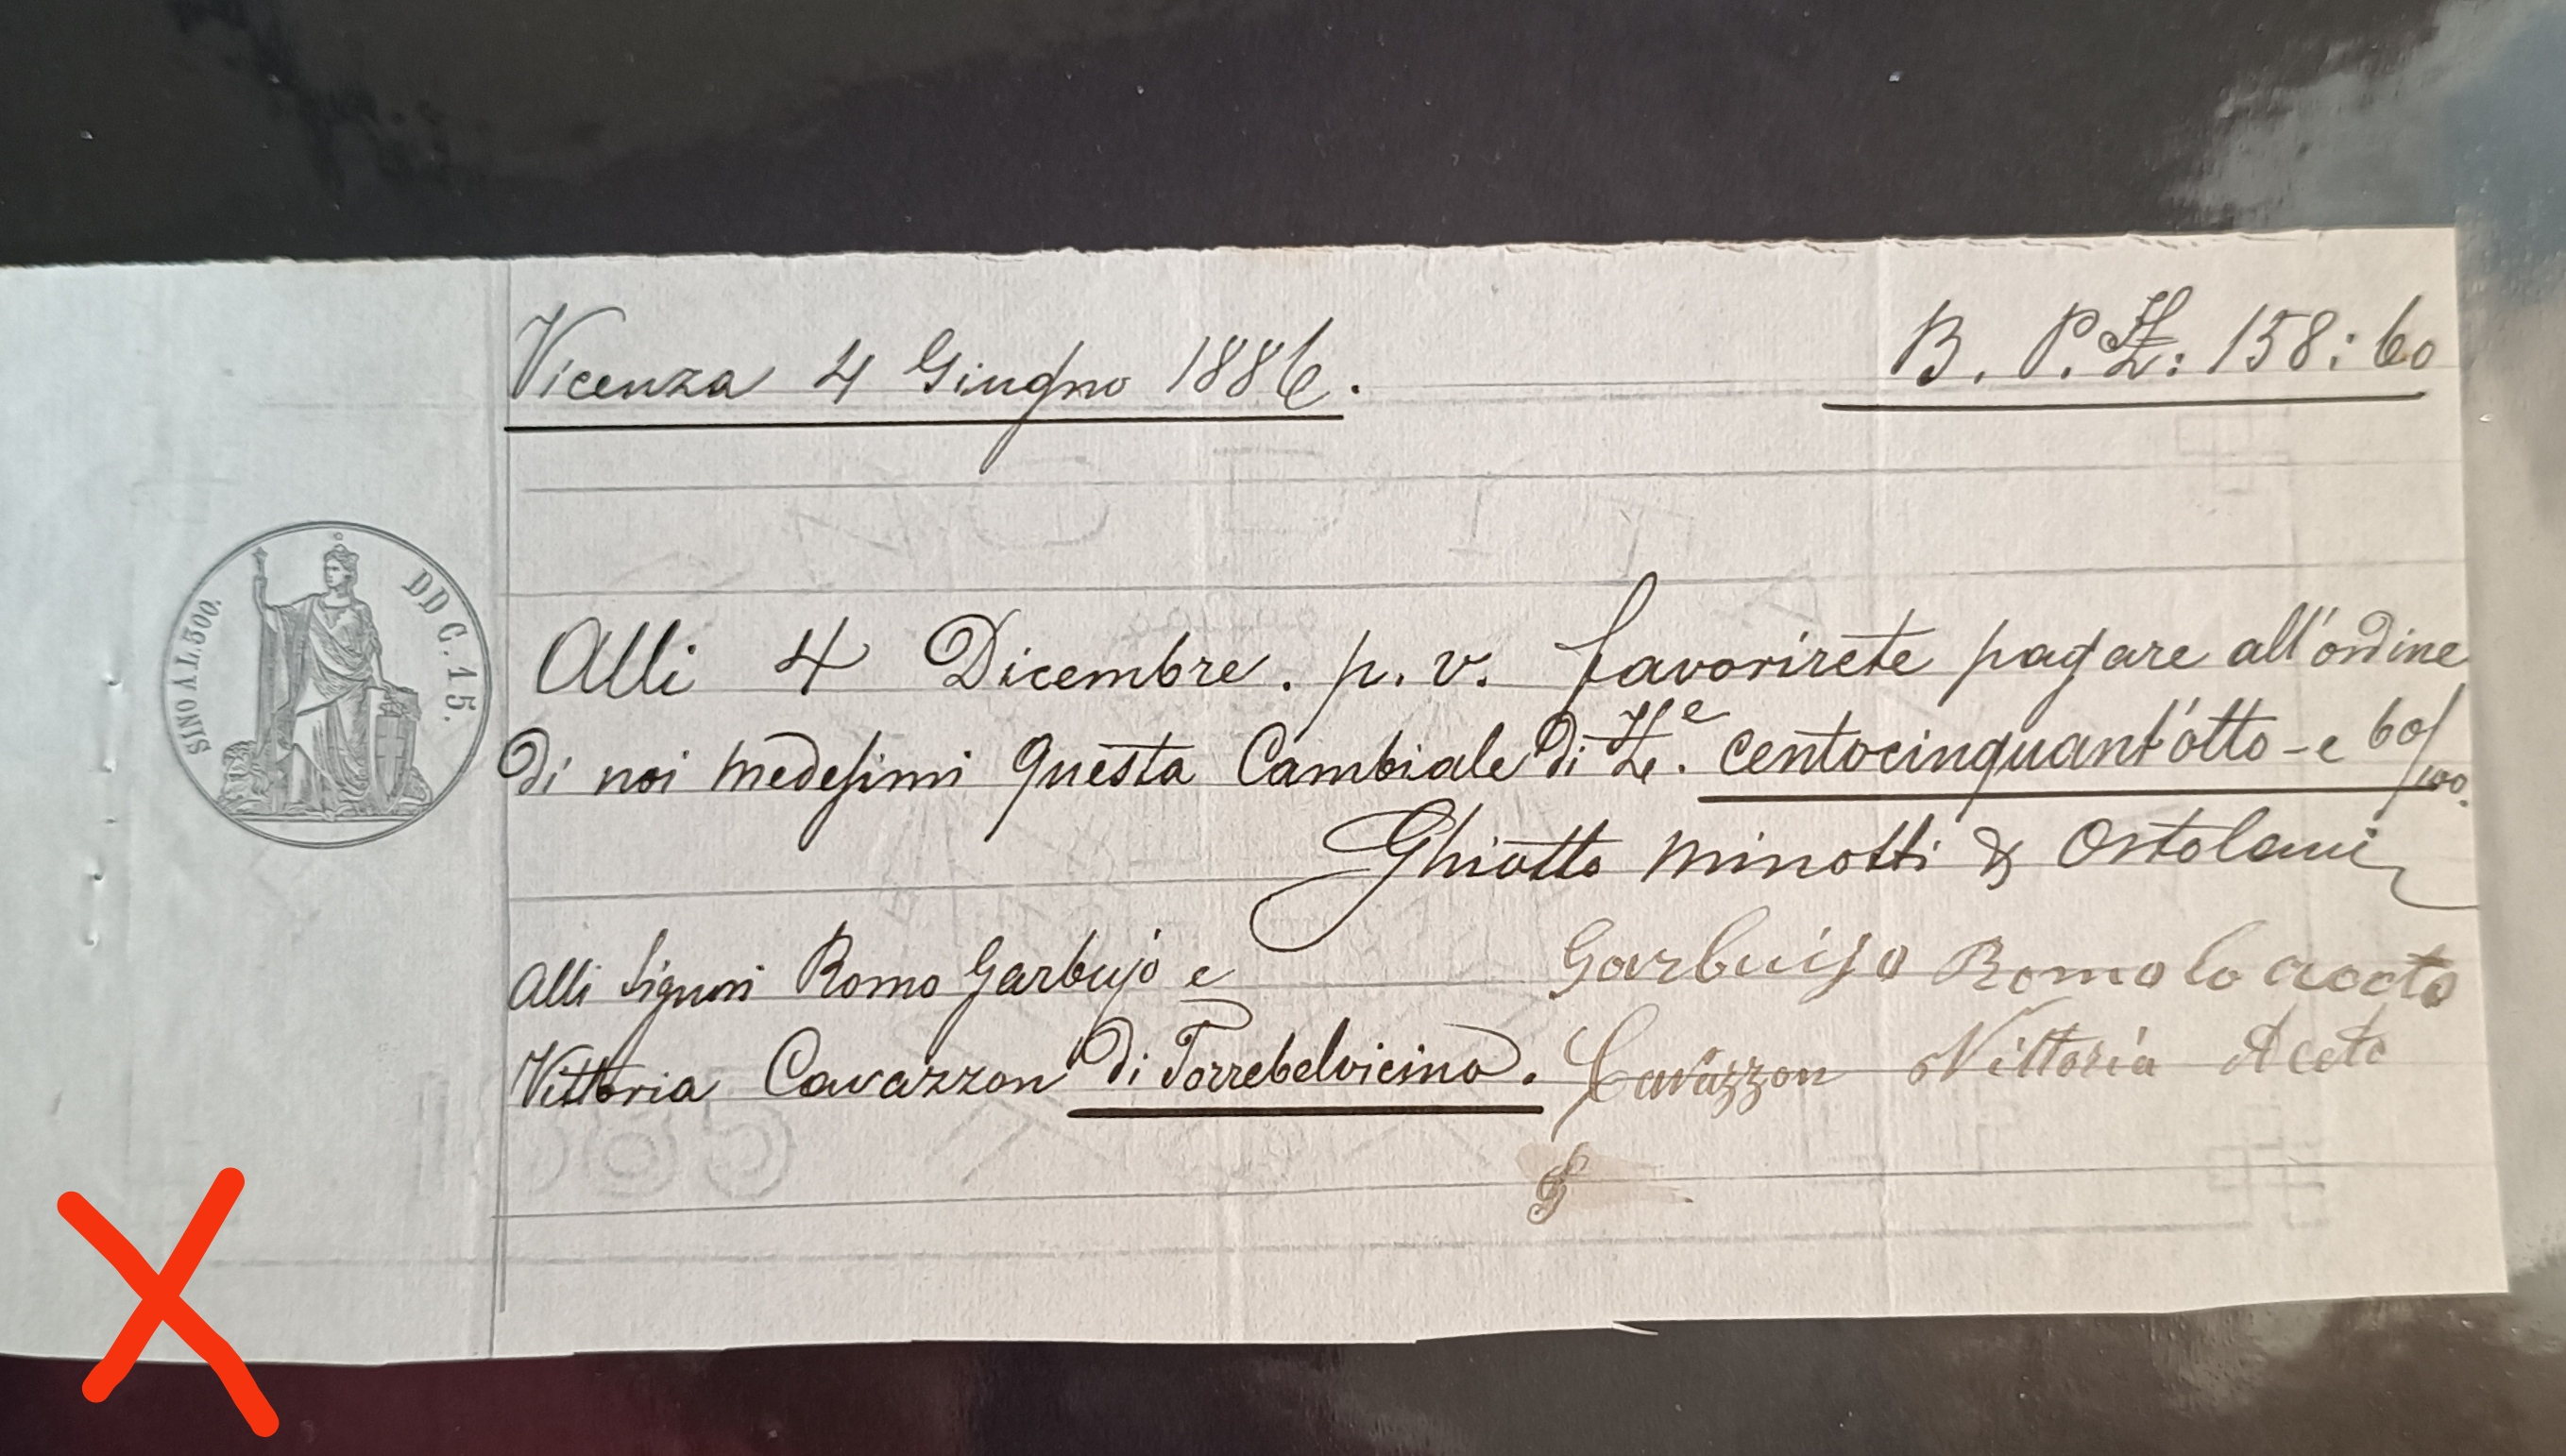 Vicenza 4 Giugno 1886.
B. P. L: 158:60
SINO A L.500.
DD C. 15.
Alli 4 Dicembre. p. v. favorirete pagare all'ordine
di noi medesimi questa Cambiale di Le. centocinquant'otto - e 60/100.
Ghiotto Minotti & Ortolani
Alli Signori Romo Garbujo e
Vittoria Cavazzon di Torrebelvicino.
Garbuijo Romolo
Cavazzon Vittoria Aceto
1885